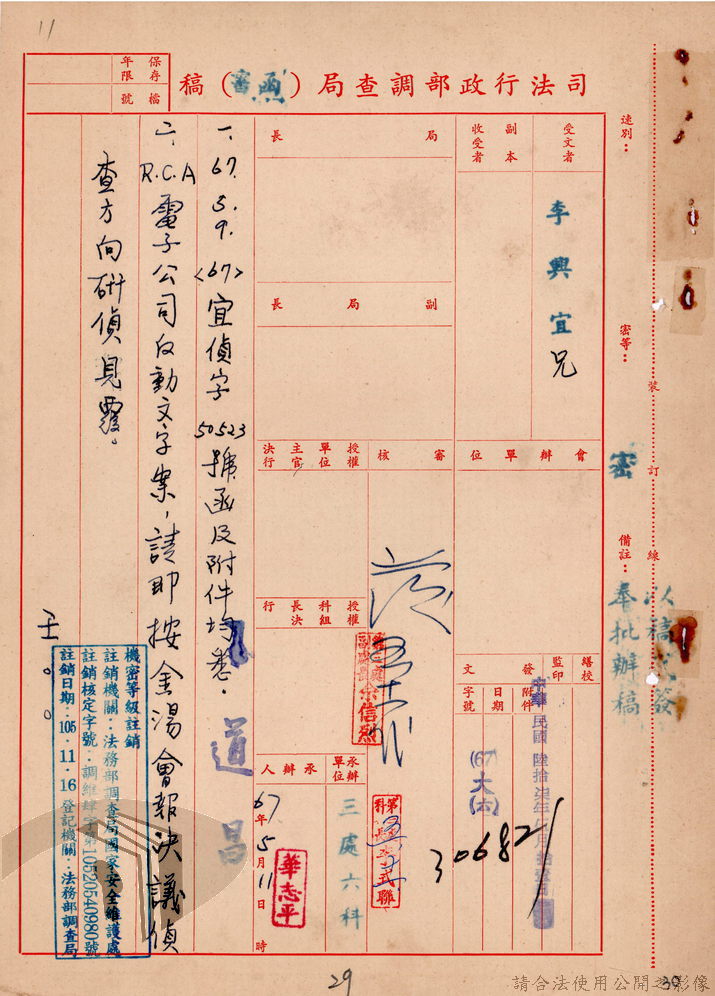 11
司法行政部調查局（審函）稿
保存年限
檔號
速別：
密等：
密
裝訂線
備註：
以稿代簽
奉批辦稿
受文者
副本收受者
李興宜兄
局長
副局長
會辦單位
審核
授權單位主官決行
授權科組長決行
繕校
監印
發文
附件
日期
字號
中華民國陸拾柒年
(67)
大
(六)
30682
宋信烈
承辦單位
承辦人
三處六科
67年5月11日時
華志平
一、67.5.9.<67>宜偵字50523號函及附件均悉。
二、R.C.A電子公司反動文字案，請即按金湯會報決議偵
查方向研偵見覆。
道昌
機密等級註銷
註銷機關：法務部調查局國家安全維護處
註銷核定字號：調維肆字第10520540980號
註銷日期：105.11.16登記機關：法務部調查局
29
30
請合法使用公開之影像